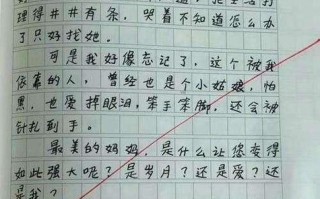 理得井井有条，哭着不知道怎么办
了只好找她。
可是我好像忘记了，这个被我
依靠的人，曾经也是个小姑娘，怕
黑，也爱掉眼泪，笨手笨脚，还会被
针扎到手。
最美的妈妈，是什么让您变得
如此强大呢？是岁月？还是爱？还
是我？